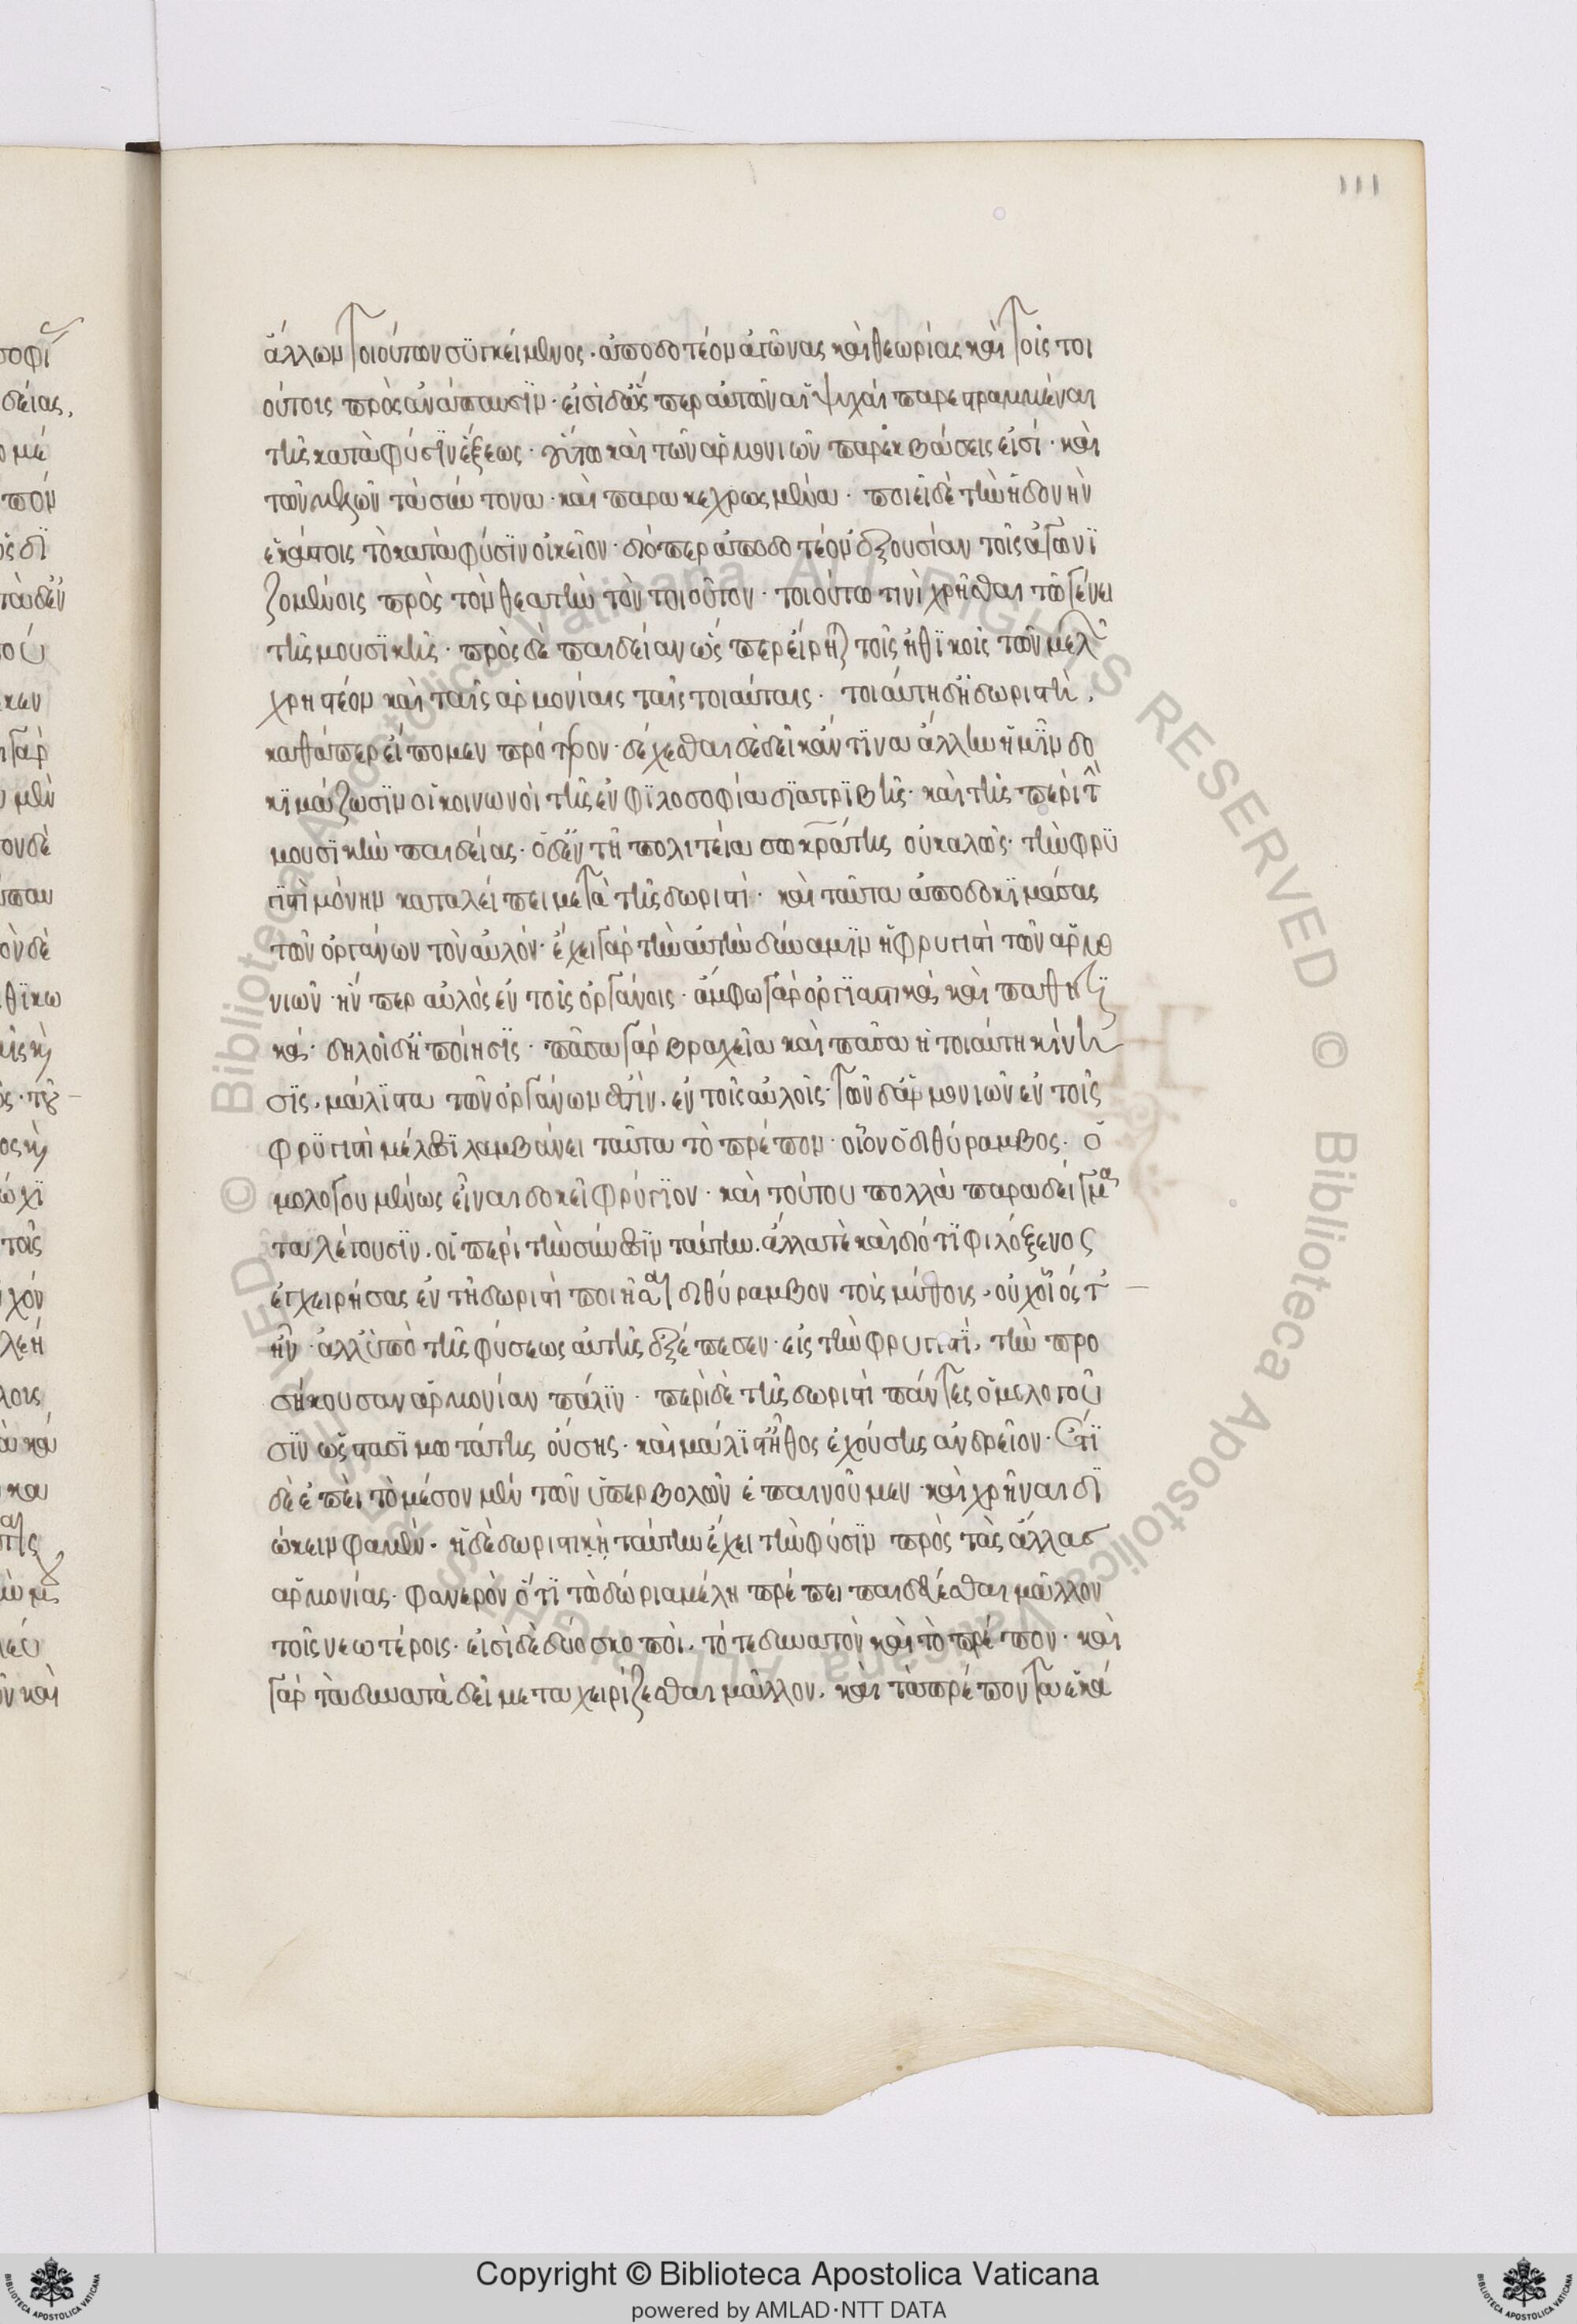 111
ἄλλων τοιούτων συγκείμενος· ἀποδοτέον ἀγῶνας καὶ θεωρίας καὶ τοῖς τοι
ούτοις πρὸς ἀνάπαυσϊν· εἰσὶ δ' ὥσπερ αὐτῶν αἱ ψυχαὶ παρεστραμμέναι
τῆς κατὰ φύσϊν ἕξεως· οὕτω καὶ τῶν ἁρμονιῶν παρεκβάσεις εἰσί· καὶ
τῶν μελῶν τὰ σύντονα· καὶ παρακεχρωσμένα· ποιεῖ δὲ τὴν ἡδονὴν
ἑκάστοις τὸ κατὰ φύσϊν οἰκεῖον· διόπερ ἀποδοτέον ἐξουσίαν τοῖς ἀγωνϊ
ζομένοις πρὸς τὸν θεατὴν τὸν τοιοῦτον· τοιούτω τινὶ χρῆσθαι τῶ γένει
τῆς μουσϊκῆς· πρὸς δὲ παιδείαν ὥσπερ εἴρηται τοῖς ἠθϊκοῖς τῶν μελῶν
χρηστέον καὶ ταῖς ἁρμονίαις ταῖς τοιαύταις· τοιαύτη δ' ἡ δωριστὶ,
καθάπερ εἴπομεν πρότερον· δέχεσθαι δὲ δεῖ κἄν τϊνα ἄλλην ἡμῖν δο
κϊμάζωσϊν οἱ κοινωνοὶ τῆς ἐν φϊλοσοφία δϊατρϊβῆς· καὶ τῆς περὶ τὴν
μουσϊκὴν παιδείας· ὁ δ' ἐν τῆ πολιτεία σωκράτης οὐ καλῶς· τὴν φρυ
γϊστὶ μόνην καταλείπει μετὰ τῆς δωριστί· καὶ ταῦτα ἀποδοκϊμάσας
τῶν ὀργάνων τὸν αὐλόν· ἔχει γὰρ τὴν αὐτὴν δύναμϊν ἡ φρυγιστὶ τῶν ἁρμο
νιῶν· ἥνπερ αὐλὸς ἐν τοῖς ὀργάνοις· ἄμφω γὰρ ὀργϊαστικὰ καὶ παθητϊ
κά· δηλοῖ δ' ἡ ποίησϊς· πᾶσα γὰρ βραχεῖα καὶ πᾶσα ἡ τοιαύτη κίνη
σϊς, μάλϊστα τῶν ὀργάνων ἐστὶν, ἐν τοῖς αὐλοῖς· τῶν δ' ἁρμονιῶν ἐν τοῖς
φρϋγιστὶ μέλεσϊ λαμβάνει ταῦτα τὸ πρέπον· οἷον ὁ διθύραμβος· ὁ
μολογουμένως εἶναι δοκεῖ φρύγϊον· καὶ τούτου πολλὰ παραδείγμα
τα λέγουσϊν, οἱ περὶ τὴν σύνεσϊν ταύτην. ἄλλα τὲ καὶ διότϊ φιλόξενος
ἐγχειρήσας ἐν τῆ δωριστὶ ποιῆσαι διθύραμβον τοὶς μύθοις, οὐχ οἷός τ'
ἦν· ἀλλ' ὑπὸ τῆς φύσεως αὐτῆς ἐξέπεσεν· εἰς τὴν φρυγιστὶ, τὴν προ
σήκουσαν ἁρμονίαν πάλϊν· περὶ δὲ τῆς δωριστὶ πάντες ὁμολογοῦ
σϊν ὡς στασϊμωτάτης οὔσης· καὶ μάλϊστ' ἦθος ἐχούσης ἀνδρεῖον· ἔτϊ
δὲ ἐπεὶ τὸ μέσον μὲν τῶν ὑπερβολῶν ἐπαινοῦμεν· καὶ χρῆναι δϊ
ώκειν φαμέν· ἡ δὲ δωριστικὴ ταύτην ἔχει τὴν φύσϊν πρὸς τὰς ἄλλας
ἁρμονίας· φανερὸν ὅτϊ τὰ δώρια μέλη πρέπει παιδεύεσθαι μᾶλλον
τοῖς νεωτέροις· εἰσὶ δὲ δύο σκοποὶ, τό τε δυνατὸν καὶ τὸ πρέπον· καὶ
γὰρ τὰ δυνατὰ δεῖ μεταχειρίζεσθαι μᾶλλον, καὶ τὰ πρέποντα ἑκά
Copyright © Biblioteca Apostolica Vaticana
powered by AMLAD·NTT DATA